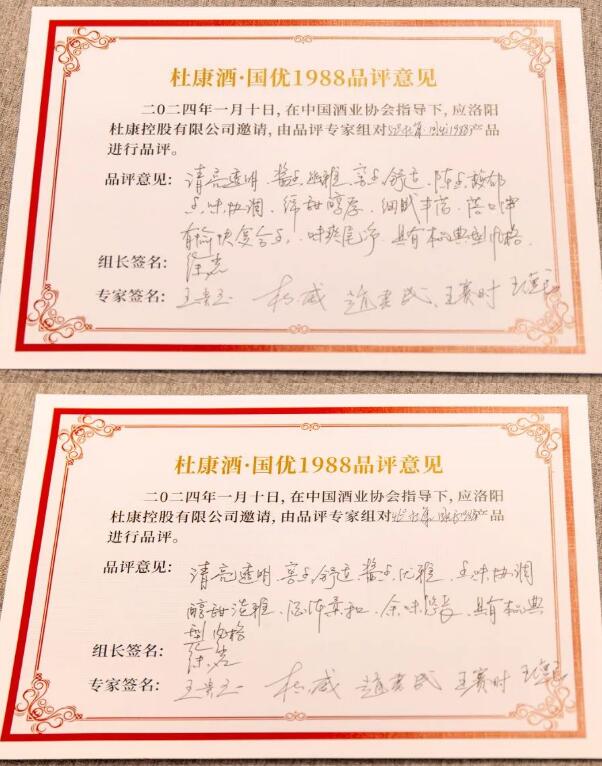 杜康酒·国优1988品评意见
二〇二四年一月十日,在中国酒业协会指导下,应洛阳
杜康控股有限公司邀请,由品评专家组对国优1988产品
进行品评。
品评意见: 清亮透明、酱香幽雅、窖香舒适、陈香馥郁
香味协调、绵甜醇厚、细腻丰富、
有愉快复合香、味爽尾净、具有本品典型风格。
组长签名: 徐岩
专家签名: 王贵玉 杨威 王赛时
杜康酒·国优1988品评意见
二〇二四年一月十日,在中国酒业协会指导下,应洛阳
杜康控股有限公司邀请,由品评专家组对产品
进行品评。
品评意见: 清亮透明、窖香舒适、酱香优雅、香味协调
醇甜淡雅、酒体柔和、余味悠长、具有本品典
型风格
组长签名: 徐岩
专家签名: 王贵玉 杨威 王赛时